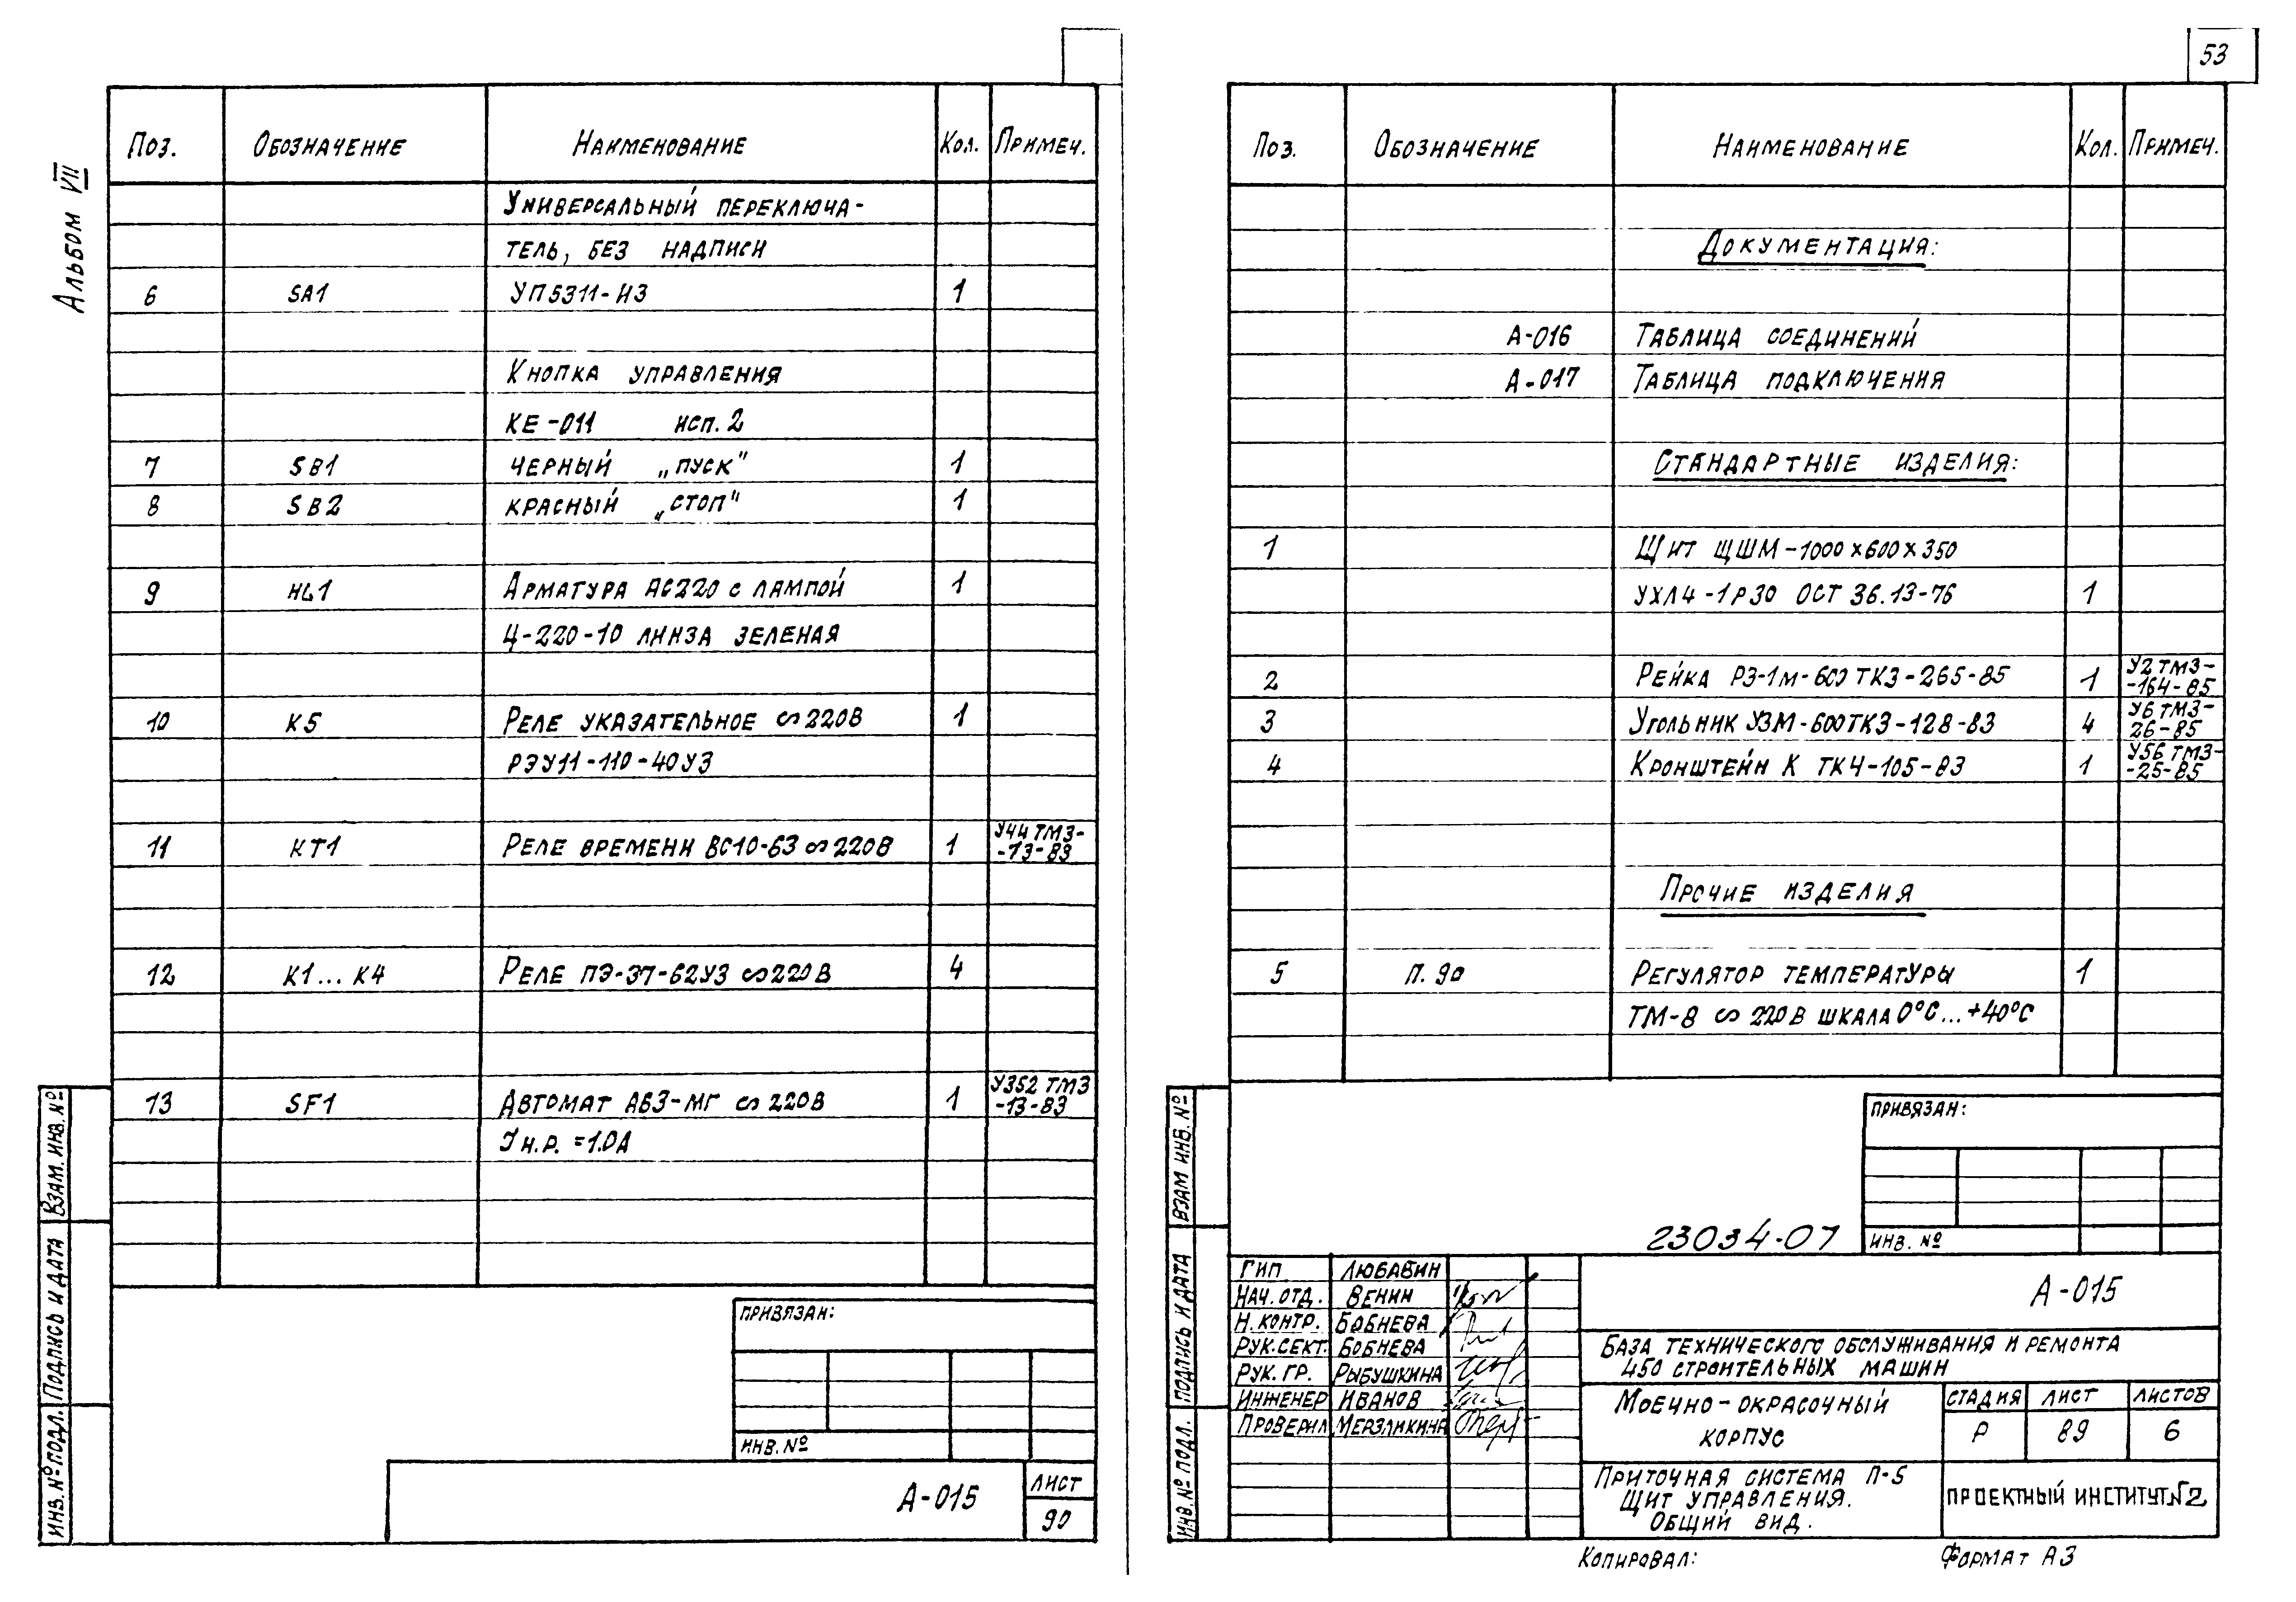 Альбом VII
Поз. Обозначение Наименование Кол. Примеч.
Универсальный переключа-
тель, без надписи
6 SA1 УП5311-И3 1
Кнопка управления
КЕ-011 исп. 2
7 SB1 черный „пуск" 1
8 SB2 красный „стоп" 1
9 HL1 Арматура АС220 с лампой 1
Ц-220-10 линза зеленая
10 К5 Реле указательное ∾220В 1
РЭУ11-110-40У3
11 КТ1 Реле времени ВС10-63 ∾220В 1 У44 ТМ3-
-13-83
12 К1...К4 Реле ПЭ-37-62У3 ∾220В 4
13 SF1 Автомат А63-МГ ∾220В 1 У352 ТМ3
-13-83
Iн.р. =1.0А
Привязан:
Инв. №
А-015
Лист
90
Инв. № подл. Подпись и дата Взам. инв. №
53
Поз. Обозначение Наименование Кол. Примеч.
Документация:
А-016 Таблица соединений
А-017 Таблица подключения
Стандартные изделия:
1 Щит ЩШМ-1000х600х350
УХЛ4-1Р30 ОСТ 36.13-76 1
2 Рейка РЗ-1м-600 ТК3-265-85 1 У2 ТМ3-
-164-85
3 Угольник УЗМ-600ТК3-128-83 4 У6 ТМ3-
26-85
4 Кронштейн К ТК4-105-83 1 У56 ТМ3-
-25-85
Прочие изделия
5 П. 9а Регулятор температуры 1
ТМ-8 ∾ 220В шкала 0°С...+40°С
Привязан:
Инв. №
23034-07
Инв. № подл. Подпись и дата Взам инв. №
ГИП Любавин
Нач. отд. Венин
Н. контр. Бобнева
Рук. сект. Бобнева
Рук. гр. Рыбушкина
Инженер Иванов
Проверил Мерзликина
А-015
База технического обслуживания и ремонта
450 строительных машин
Моечно-окрасочный
корпус
Стадия Лист Листов
Р 89 6
Приточная система П-5
Щит управления.
Общий вид.
Проектный институт №2
Копировал: Формат А3